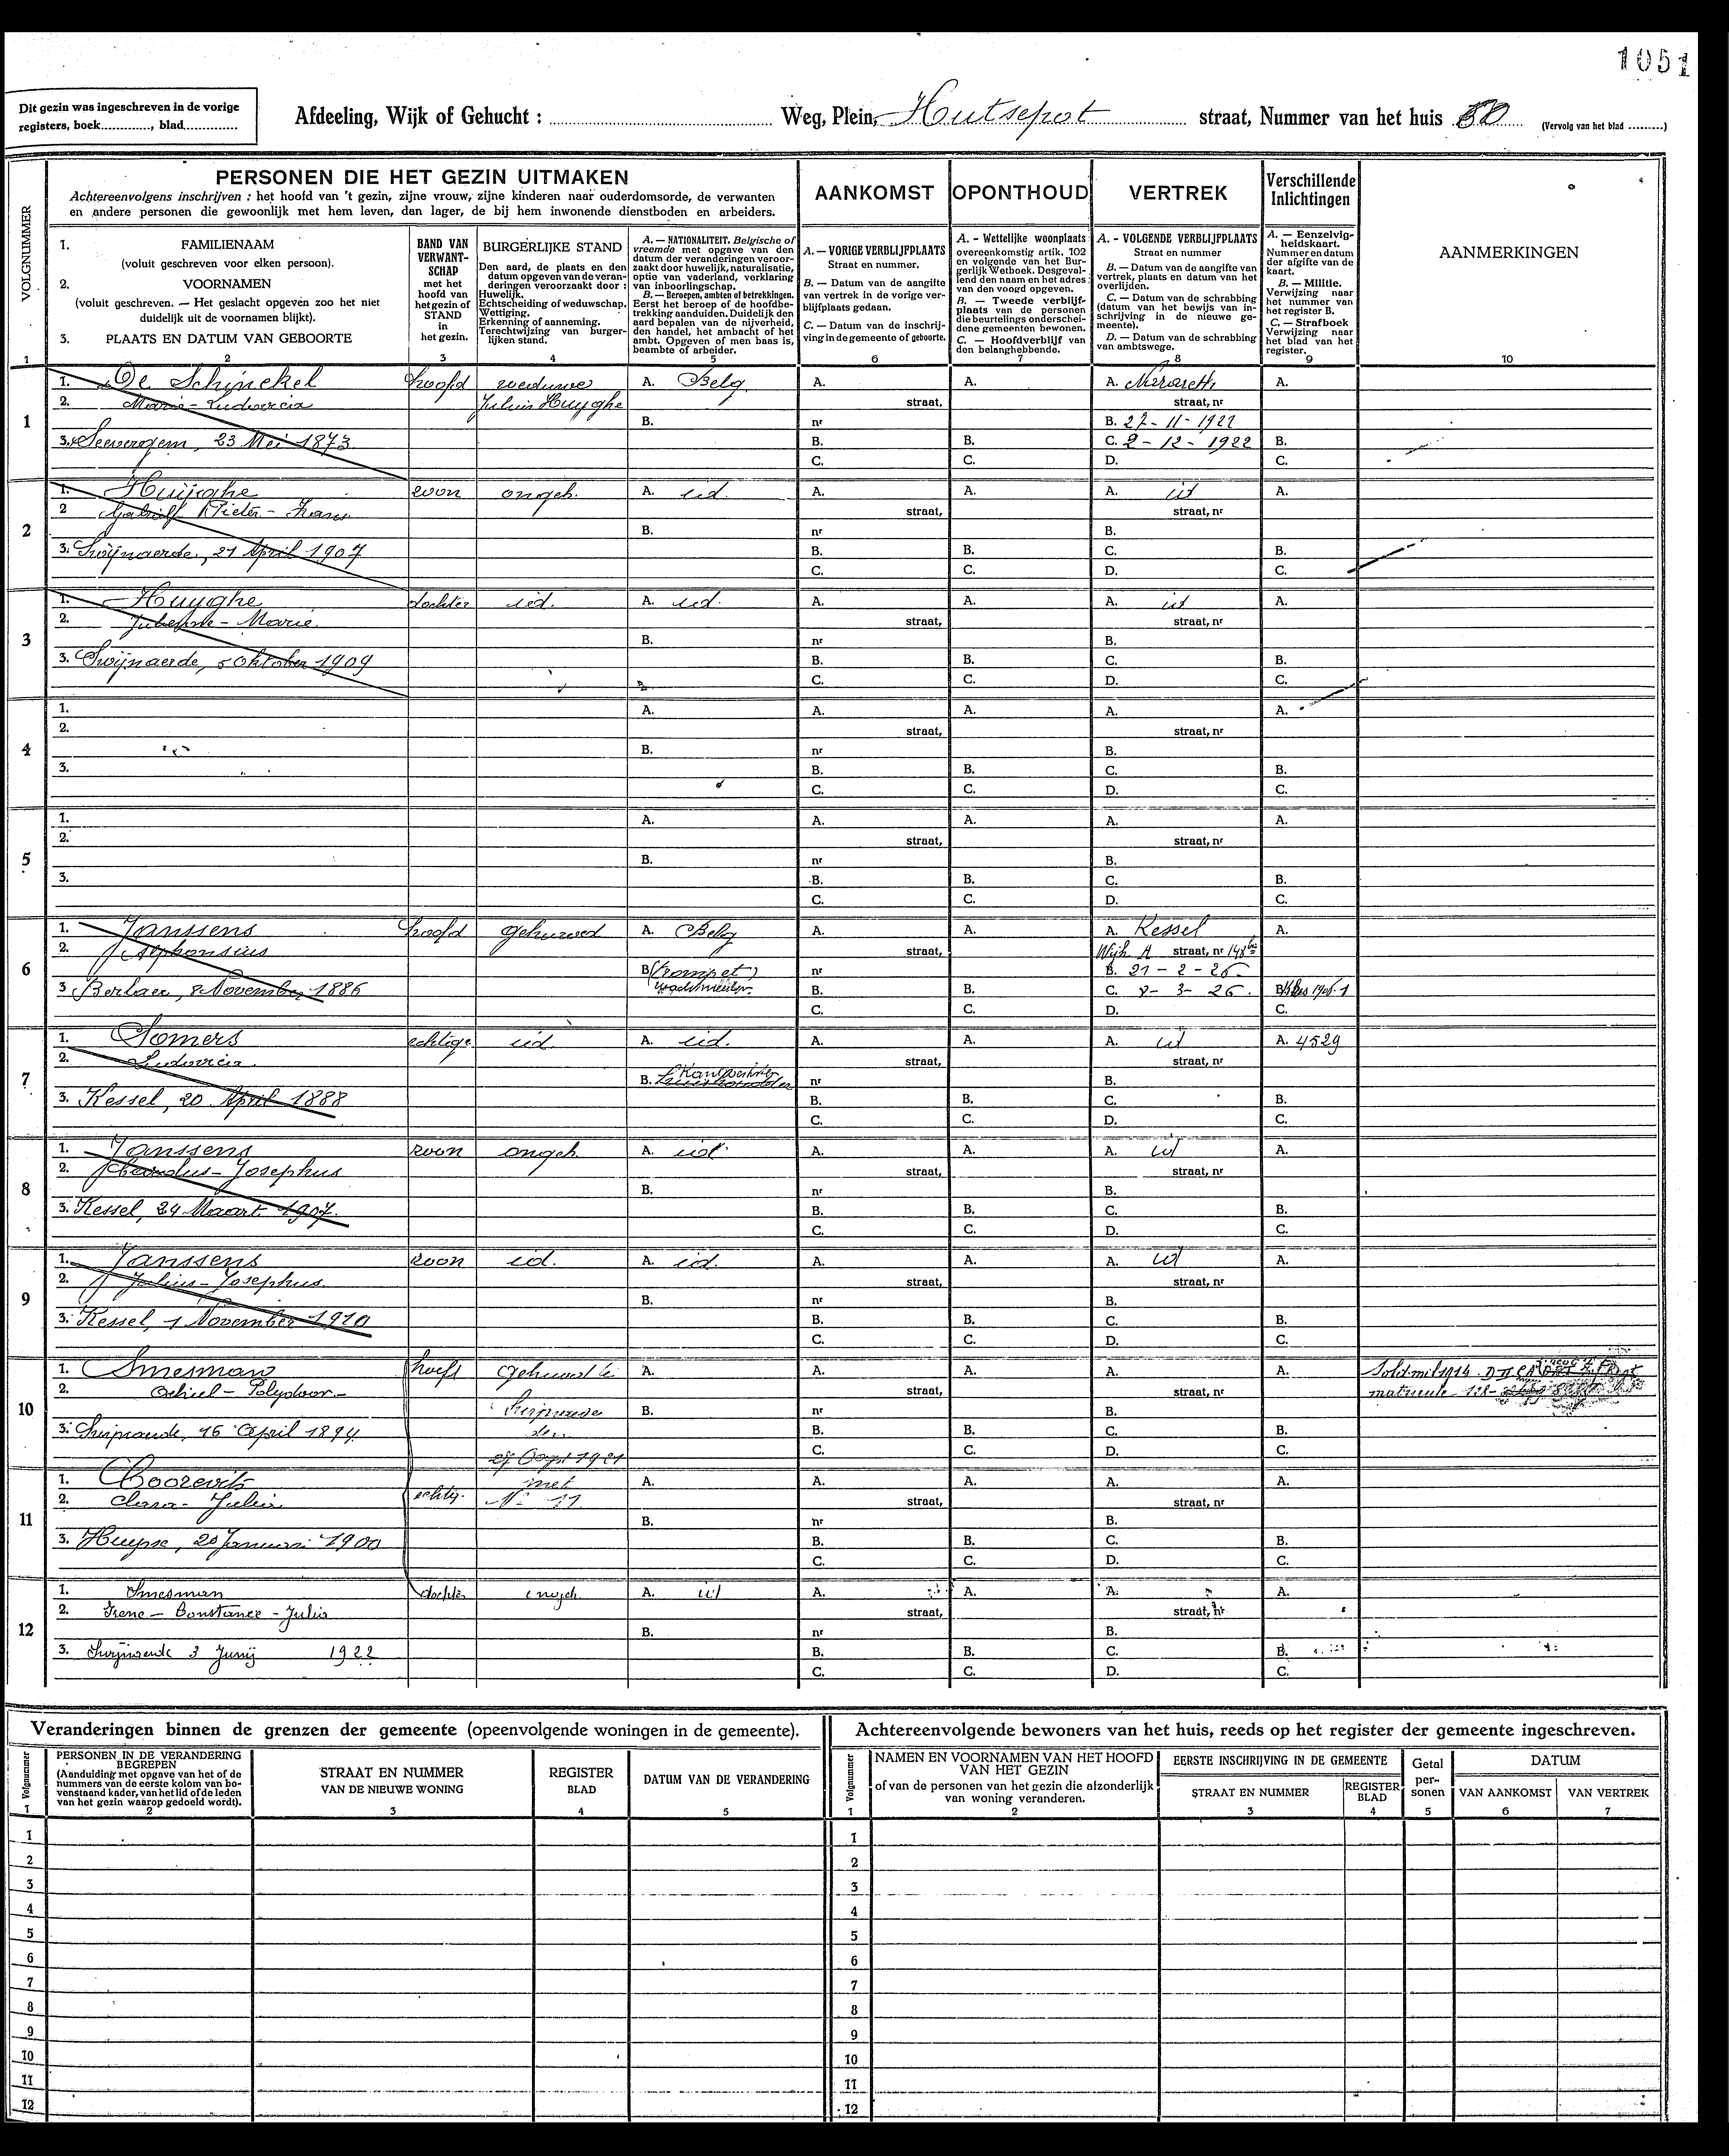 1051
Dit gezin was ingeschreven in de vorige
registers, boek............, blad..............
Afdeeling, Wijk of Gehucht : .......... Weg, Plein, Hutsepot straat, Nummer van het huis 50 (Vervolg van het blad ..........)
PERSONEN DIE HET GEZIN UITMAKEN
Achtereenvolgens inschrijven : het hoofd van 't gezin, zijne vrouw, zijne kinderen naar ouderdomsorde, de verwanten
en andere personen die gewoonlijk met hem leven, dan lager, de bij hem inwonende dienstboden en arbeiders.
AANKOMST
OPONTHOUD
VERTREK
Verschillende
Inlichtingen
VOLGNUMMER
1. FAMILIENAAM
(voluit geschreven voor elken persoon).
2. VOORNAMEN
(voluit geschreven. — Het geslacht opgeven zoo het niet
duidelijk uit de voornamen blijkt).
3. PLAATS EN DATUM VAN GEBOORTE
BAND VAN
VERWANT-
SCHAP
met het
hoofd van
het gezin of
STAND
in
het gezin.
BURGERLIJKE STAND
Den aard, de plaats en den
datum opgeven van de veran-
deringen veroorzaakt door :
Huwelijk.
Echtscheiding of weduwschap.
Wettiging.
Erkenning of aanneming.
Terechtwijzing van burger-
lijken stand.
A. — NATIONALITEIT. Belgische of
vreemde met opgave van den
datum der veranderingen veroor-
zaakt door huwelijk, naturalisatie,
optie van vaderland, verklaring
van inboorlingschap.
B. — Beroepen, ambten of betrekkingen.
Eerst het beroep of de hoofdbe-
trekking aanduiden. Duidelijk den
aard bepalen van de nijverheid,
den handel, het ambacht of het
ambt. Opgeven of men baas is,
beambte of arbeider.
A. — VORIGE VERBLIJFPLAATS
Straat en nummer.
B. — Datum van de aangifte
van vertrek in de vorige ver-
blijfplaats gedaan.
C. — Datum van de inschrij-
ving in de gemeente of geboorte.
A. - Wettelijke woonplaats
overeenkomstig artik. 102
en volgende van het Bur-
gerlijk Wetboek. Desgeval-
lend den naam en het adres
van den voogd opgeven.
B. — Tweede verblijf-
plaats van de personen
die beurtelings onderschei-
dene gemeenten bewonen.
C. — Hoofdverblijf van
den belanghebbende.
A. - VOLGENDE VERBLIJFPLAATS
Straat en nummer
B. — Datum van de aangifte van
vertrek, plaats en datum van het
overlijden.
C. — Datum van de schrabbing
(datum van het bewijs van in-
schrijving in de nieuwe ge-
meente).
D. — Datum van de schrabbing
van ambtswege.
A. — Eenzelvig-
heidskaart.
Nummer en datum
der afgifte van de
kaart.
B. — Militie.
Verwijzing naar
het nummer van
het register B.
C. — Strafboek
Verwijzing naar
het blad van het
register.
AANMERKINGEN
1 2 3 4 5 6 7 8 9 10
1
1. De Schinckel hoofd weduwe A. Belg A. A. A. Nazareth A.
2. Marie-Ludovicia Julius Huyghe straat, straat, nr
B. nr B. 27-11-1922
3. Seevergem, 23 Mei 1873 B. B. C. 2-12-1922 B.
C. C. D. C.
2
1. Huijghe zoon ongeh. A. id. A. A. A. id A.
2 Pieter-Frans straat, straat, nr
B. nr B.
3. Swijnaerde, 21 April 1907 B. B. C. B.
C. C. D. C.
3
1. Huyghe dochter id. A. id. A. A. A. id A.
2. Marie straat, straat, nr
B. nr B.
3. Swijnaerde, 5 Oktober 1909 B. B. C. B.
C. C. D. C.
4
1. A. A. A. A. A.
2. straat, straat, nr
B. nr B.
3. B. B. C. B.
C. C. D. C.
5
1. A. A. A. A. A.
2. straat, straat, nr
B. nr B.
3. B. B. C. B.
C. C. D. C.
6
1. Janssens hoofd gehuwd A. Belg A. A. A. Kessel A.
2. Alphonsius straat, Wijk A straat, nr 148bis
B (trompet) nr B. 21-2-26
3 Berlaer, 8 November 1886 wachtmeester B. B. C. 8-3-26. B.
C. C. D. C.
7
1. Somers echtge id A. id. A. A. A. id A. 4529
2. Ludovica straat, straat, nr
B. Kantwerkster nr B.
3. Kessel, 20 April 1888 B. B. C. B.
C. C. D. C.
8
1. Janssens zoon ongeh. A. id. A. A. A. id A.
2. Josephus straat, straat, nr
B. nr B.
3. Kessel, 24 Maart 1907. B. B. C. B.
C. C. D. C.
9
1. Janssens zoon id. A. id. A. A. A. id A.
2. Julius-Josephus straat, straat, nr
B. nr B.
3. Kessel, 1 November 1910 B. B. C. B.
C. C. D. C.
10
1. Smesman hooft Gehuwd te A. A. A. A. A. Sold mil 1914
2. Achiel-Polydoor straat, straat, nr matricule 128-
B. nr B.
3. 16 April 1894 den B. B. C. B.
Oogst 1921 C. C. D. C.
11
1. Coorevits echtig. met A. A. A. A. A.
2. Clara-Julia N° 11 straat, straat, nr
B. nr B.
3. Huysse, 20 Januari 1900 B. B. C. B.
C. C. D. C.
12
1. Smesman dochter ongeh. A. id A. A. A. A.
2. Irene-Constance-Julia straat, straat, nr
B. nr B.
3. Swijnaerde 3 Junij 1922 B. B. C. B.
C. C. D. C.
Veranderingen binnen de grenzen der gemeente (opeenvolgende woningen in de gemeente).
Volgnummer
PERSONEN IN DE VERANDERING
BEGREPEN
(Aanduiding met opgave van het of de
nummers van de eerste kolom van bo-
venstaand kader, van het lid of de leden
van het gezin waarop gedoeld wordt).
STRAAT EN NUMMER
VAN DE NIEUWE WONING
REGISTER
BLAD
DATUM VAN DE VERANDERING
1 2 3 4 5
1
2
3
4
5
6
7
8
9
10
11
12
Achtereenvolgende bewoners van het huis, reeds op het register der gemeente ingeschreven.
Volgnummer
NAMEN EN VOORNAMEN VAN HET HOOFD
VAN HET GEZIN
of van de personen van het gezin die afzonderlijk
van woning veranderen.
EERSTE INSCHRIJVING IN DE GEMEENTE
STRAAT EN NUMMER
REGISTER
BLAD
Getal
per-
sonen
DATUM
VAN AANKOMST
VAN VERTREK
1 2 3 4 5 6 7
1
2
3
4
5
6
7
8
9
10
11
12